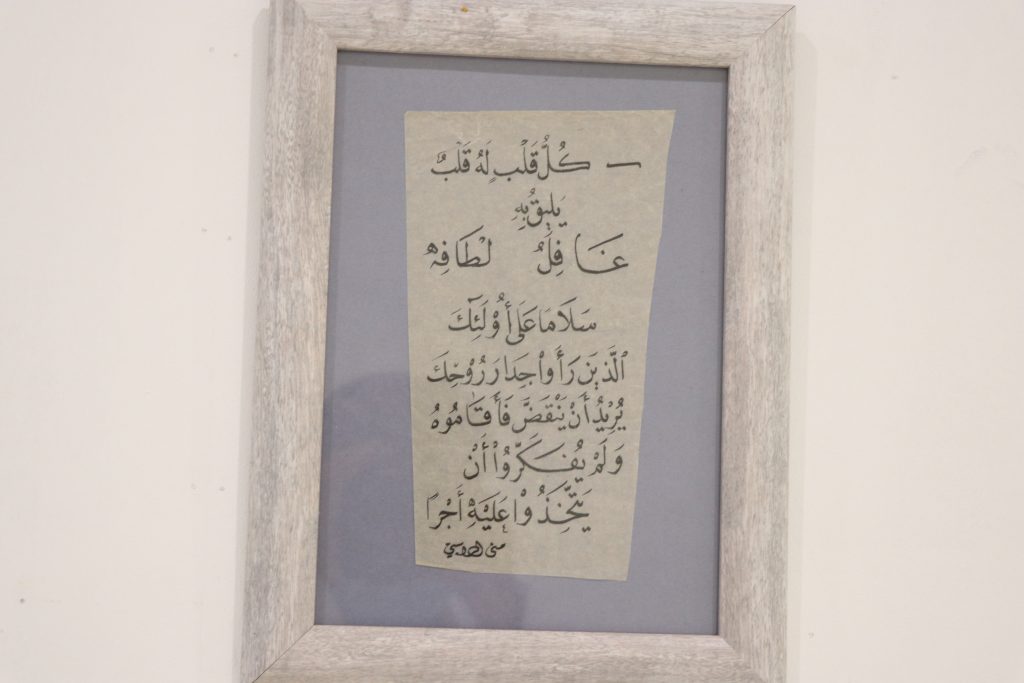 ـ كُلُّ قَلْب لَهُ قَلْبٌ
يَلِيقُ بِهِ
غَافِلٌ لَطَافِه
سَلَامَا عَلَى أُوْلَئِكَ
الَّذِينَ رَأَواْ جِدَارَ رُوْحِكَ
يُرِيْدُ أَنْ يَنْقَضَّ فَأَقَامُوهُ
وَلَمْ يُفَكِّرُواْ أَنْ
يَتَّخِذُوْا عَلَيْهِ أَجْرًا
منى